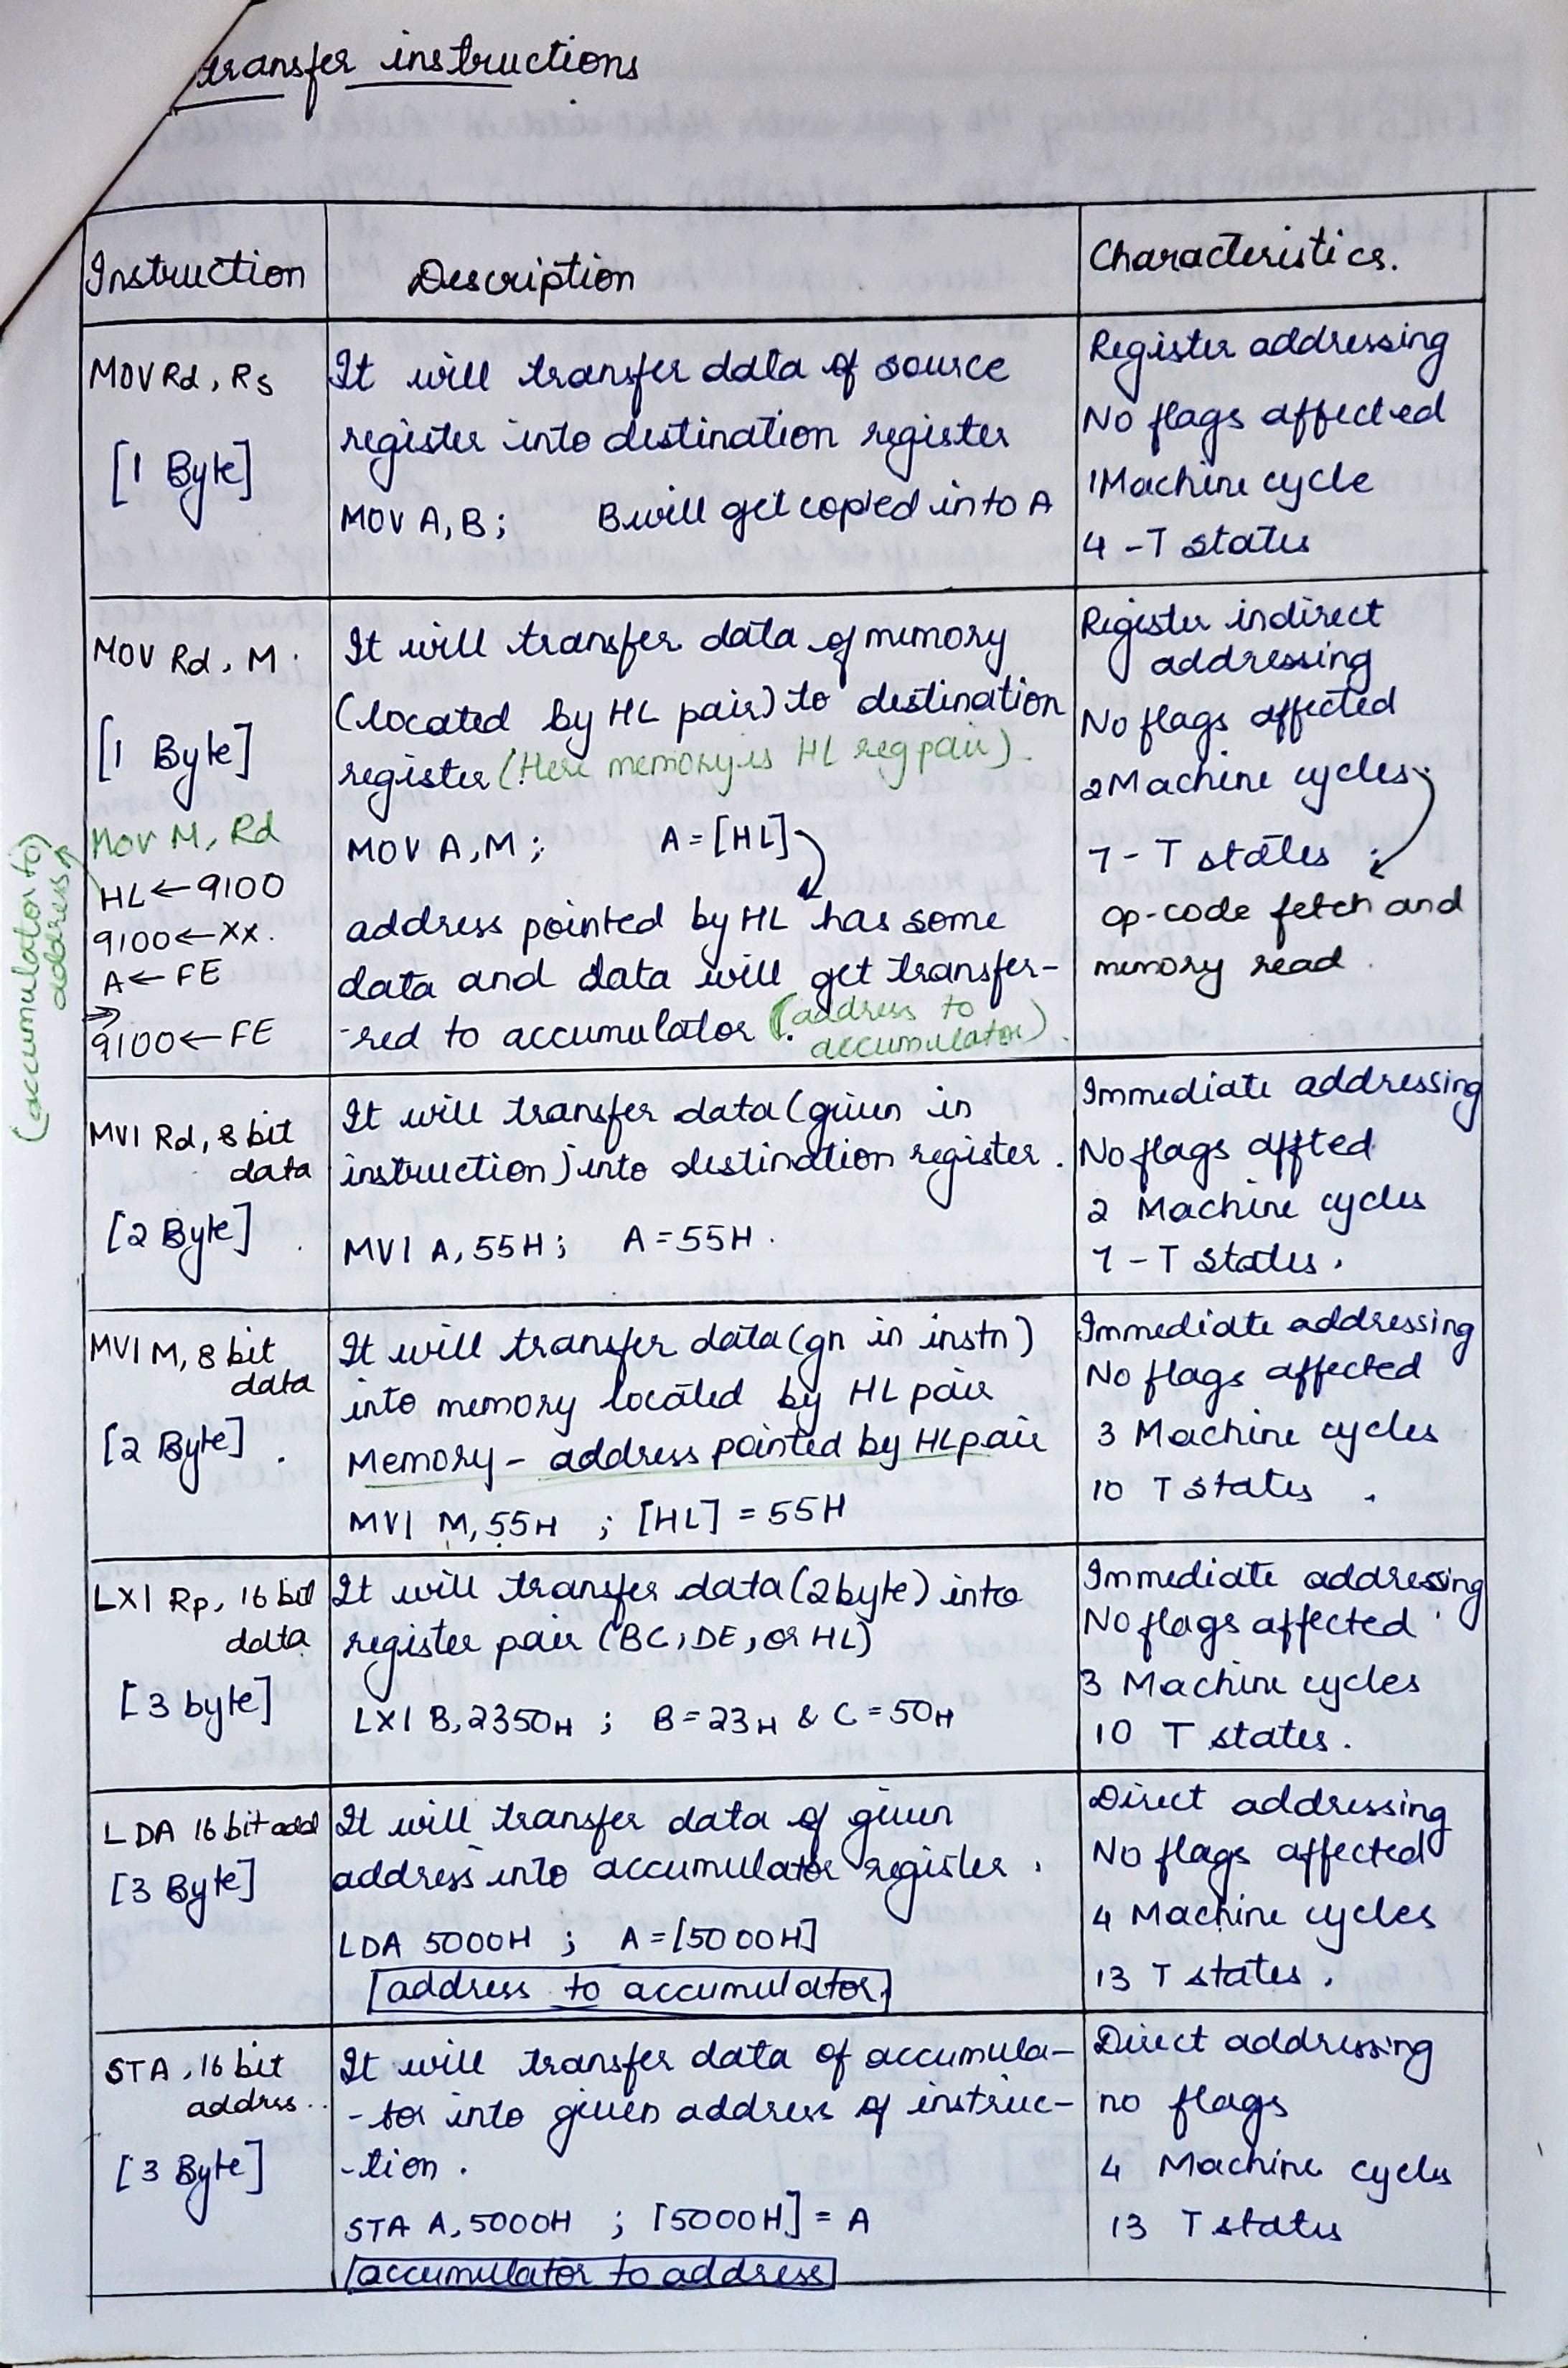 transfer instructions
Instruction
Description
Characteristics.
MOV Rd, Rs
[1 Byte]
It will transfer data of source
register into destination register
MOV A, B; B will get copied into A
Register addressing
No flags affected
1 Machine cycle
4 - T states
MOV Rd, M.
[1 Byte]
Mov M, Rd
HL ← 9100
9100 ← XX.
A ← FE
9100 ← FE
(accumulator to)
address
It will transfer data of memory
(located by HL pair) to destination
register (Here memory is HL reg pair)
MOV A, M; A = [HL]
address pointed by HL has some
data and data will get transfer-
-red to accumulator. (address to
accumulator)
Register indirect
addressing
No flags affected
2 Machine cycles
7 - T states
op-code fetch and
memory read.
MVI Rd, 8 bit
data
[2 Byte]
It will transfer data (given in
instruction) into destination register.
MVI A, 55H; A = 55H.
Immediate addressing
No flags affted
2 Machine cycles
7 - T states.
MVI M, 8 bit
data
[2 Byte].
It will transfer data (gn in instn)
into memory located by HL pair
Memory - address pointed by HL pair
MVI M, 55H ; [HL] = 55H
Immediate addressing
No flags affected
3 Machine cycles
10 T states.
LXI Rp, 16 bit
data
[3 byte]
It will transfer data (2 byte) into
register pair (BC, DE, or HL)
LXI B, 2350H ; B = 23H & C = 50H
Immediate addressing
No flags affected
3 Machine cycles
10 T states.
LDA 16 bit add
[3 Byte]
It will transfer data of given
address into accumulator register.
LDA 5000H ; A = [5000H]
address to accumulator.
Direct addressing
No flags affected
4 Machine cycles
13 T states.
STA, 16 bit
address..
[3 Byte]
It will transfer data of accumula-
-tor into given address of instruc-
-tion.
STA A, 5000H ; [5000H] = A
accumulator to address
Direct addressing
no flags
4 Machine cycles
13 T states